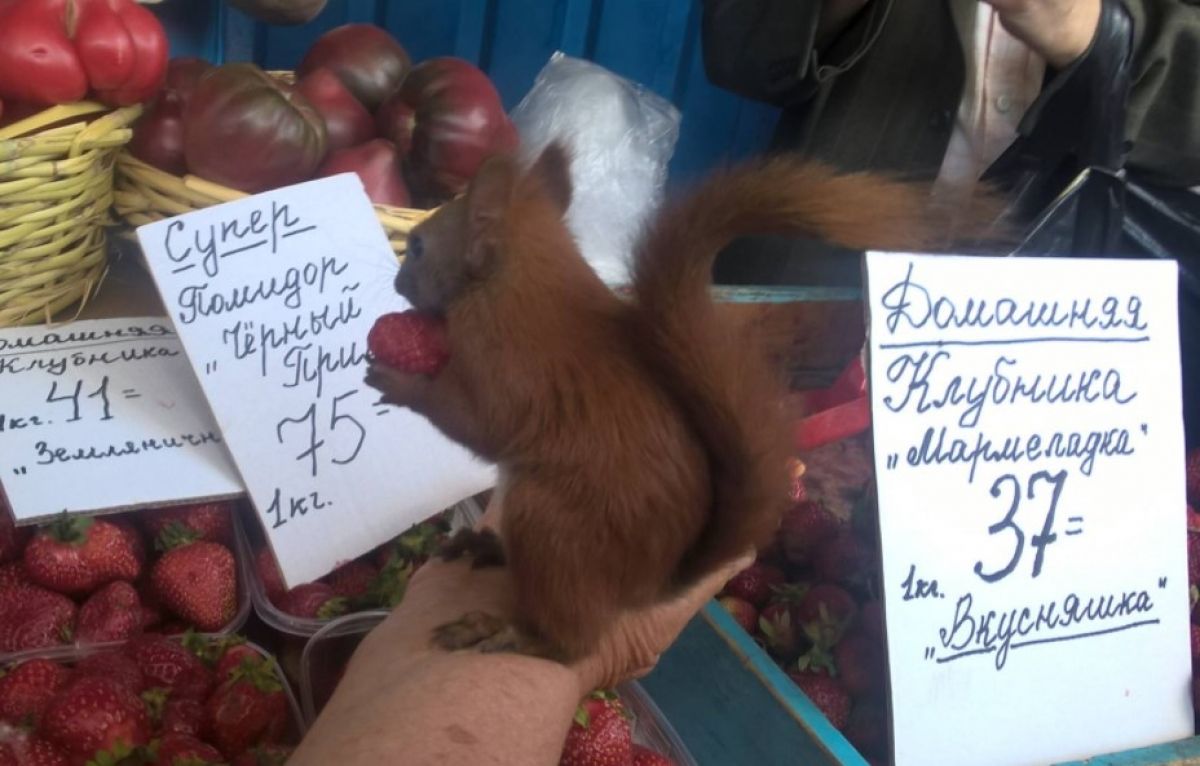 Домашняя
Клубника
1кг. 41=
„Земляничн
Супер
Помидор
„Чёрный
75=
1кг.
Домашняя
Клубника
„Мармеладка"
37=
1кг.
„Вкусняшка"